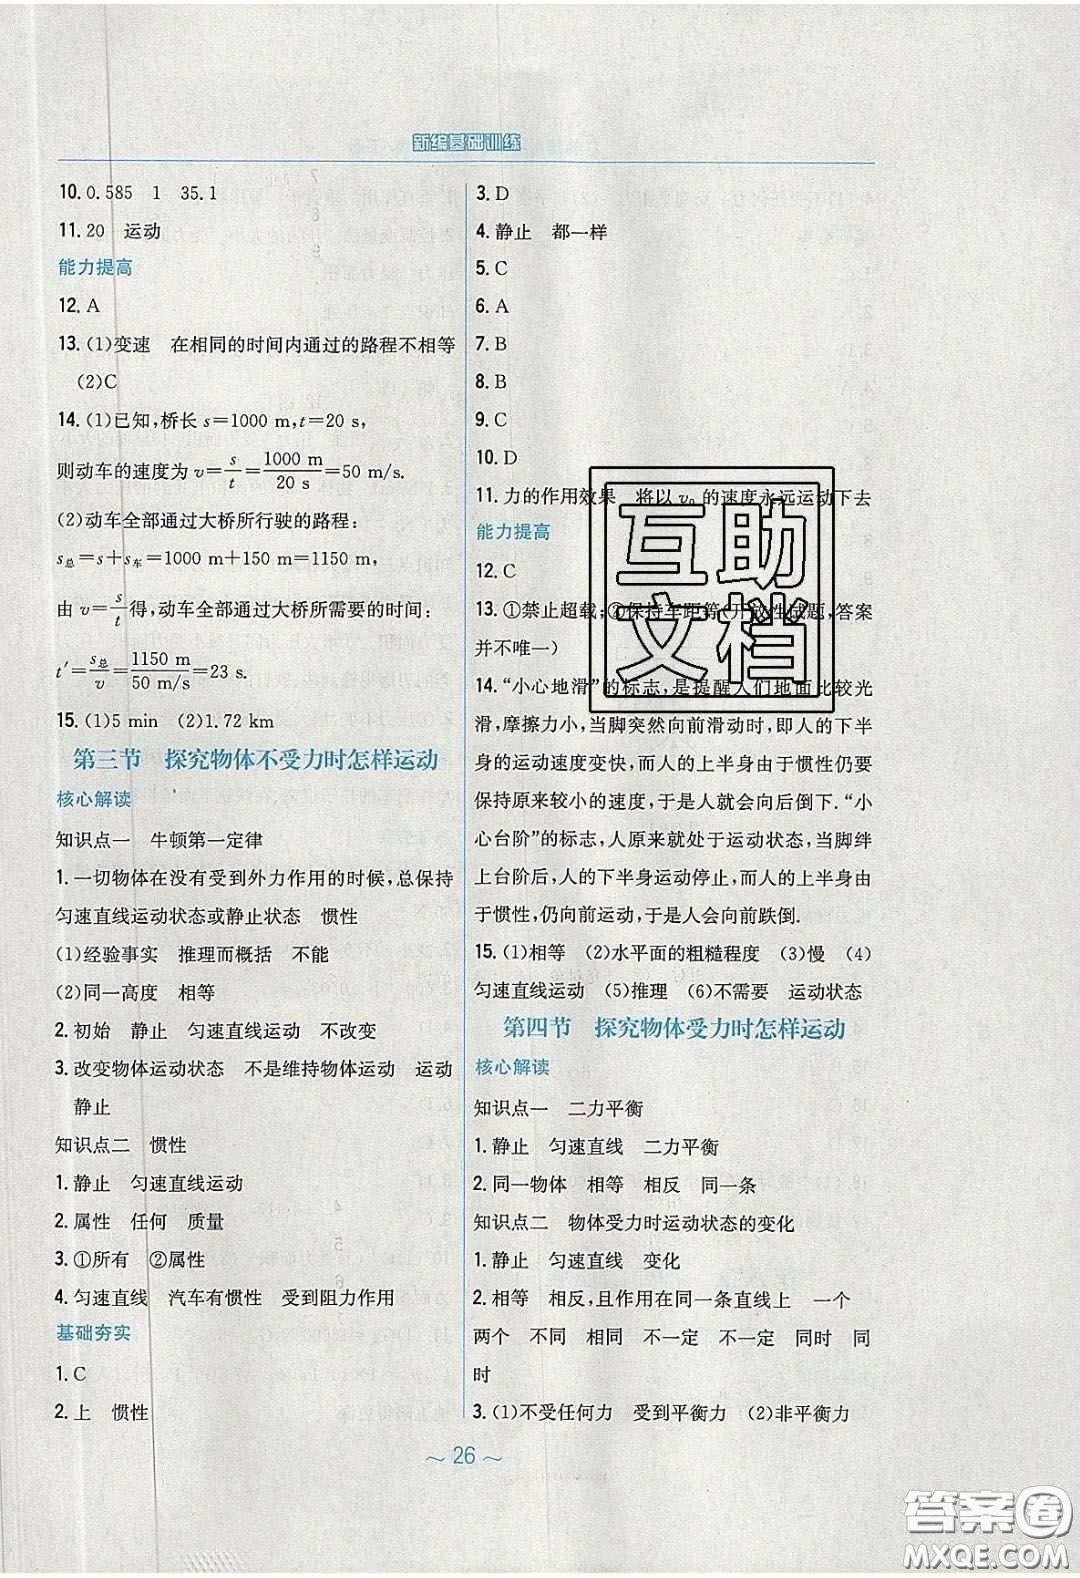 新编基础训练
10. 0.585 1 35.1
11. 20 运动
能力提高
12. A
13. (1)变速 在相同的时间内通过的路程不相等
(2)C
14. (1)已知,桥长 s=1000 m,t=20 s,
则动车的速度为 v=s/t=1000 m/20 s=50 m/s.
(2)动车全部通过大桥所行驶的路程:
s总=s+s车=1000 m+150 m=1150 m,
由 v=s/t得,动车全部通过大桥所需要的时间:
t′=s总/v=1150 m/50 m/s=23 s.
15. (1)5 min (2)1.72 km
第三节 探究物体不受力时怎样运动
核心解读
知识点一 牛顿第一定律
1. 一切物体在没有受到外力作用的时候,总保持
匀速直线运动状态或静止状态 惯性
(1)经验事实 推理而概括 不能
(2)同一高度 相等
2. 初始 静止 匀速直线运动 不改变
3. 改变物体运动状态 不是维持物体运动 运动
静止
知识点二 惯性
1. 静止 匀速直线运动
2. 属性 任何 质量
3. ①所有 ②属性
4. 匀速直线 汽车有惯性 受到阻力作用
基础夯实
1. C
2. 上 惯性
3. D
4. 静止 都一样
5. C
6. A
7. B
8. B
9. C
10. D
11. 力的作用效果 将以 v₀ 的速度永远运动下去
能力提高
12. C
13. ①禁止超载;②保持车距等(开放性试题,答案
并不唯一)
14. “小心地滑”的标志,是提醒人们地面比较光
滑,摩擦力小,当脚突然向前滑动时,即人的下半
身的运动速度变快,而人的上半身由于惯性仍要
保持原来较小的速度,于是人就会向后倒下.“小
心台阶”的标志,人原来就处于运动状态,当脚绊
上台阶后,人的下半身运动停止,而人的上半身由
于惯性,仍向前运动,于是人会向前跌倒.
15. (1)相等 (2)水平面的粗糙程度 (3)慢 (4)
匀速直线运动 (5)推理 (6)不需要 运动状态
第四节 探究物体受力时怎样运动
核心解读
知识点一 二力平衡
1. 静止 匀速直线 二力平衡
2. 同一物体 相等 相反 同一条
知识点二 物体受力时运动状态的变化
1. 静止 匀速直线 变化
2. 相等 相反,且作用在同一条直线上 一个
两个 不同 相同 不一定 不一定 同时 同
时
3. (1)不受任何力 受到平衡力 (2)非平衡力
～ 26 ～
互助
文档
答案卷
MXQE.COM